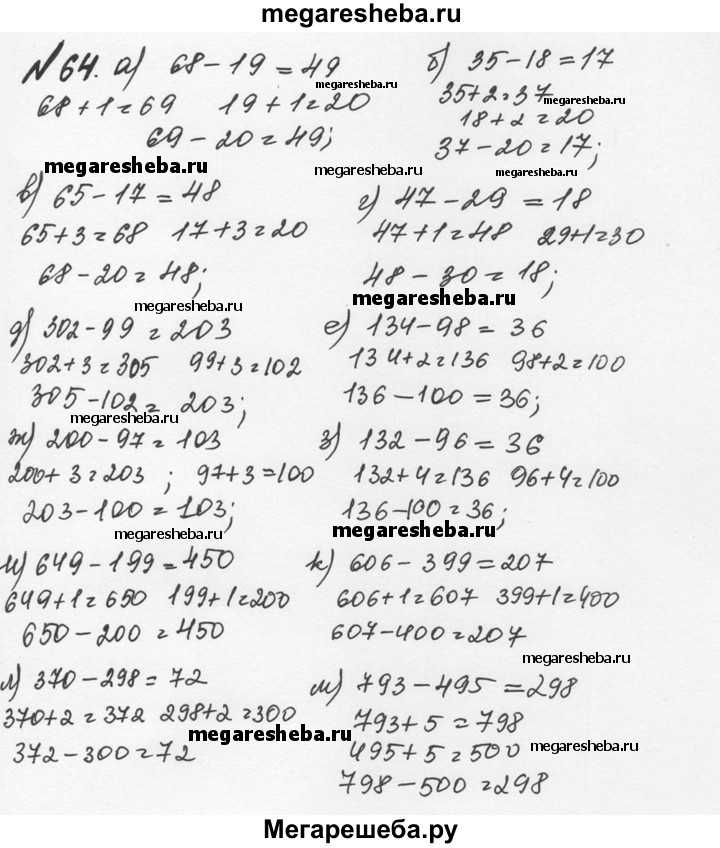 megaresheba.ru
№64. а) 68-19=49
68+1=69 19+1=20
69-20=49;
megaresheba.ru
б) 35-18=17
35+2=37
megaresheba.ru
18+2=20
37-20=17;
megaresheba.ru
megaresheba.ru
в) 65-17=48
65+3=68 17+3=20
68-20=48;
г) 47-29=18
47+1=48 29+1=30
48-30=18;
megaresheba.ru
megaresheba.ru
д) 302-99=203
302+3=305 99+3=102
305-102=203;
е) 134-98=36
134+2=136 98+2=100
136-100=36;
megaresheba.ru
ж) 200-97=103
200+3=203; 97+3=100
203-100=103;
з) 132-96=36
132+4=136 96+4=100
136-100=36;
megaresheba.ru
megaresheba.ru
и) 649-199=450
649+1=650 199+1=200
650-200=450
к) 606-399=207
606+1=607 399+1=400
607-400=207
megaresheba.ru
л) 370-298=72
370+2=372 298+2=300
372-300=72
megaresheba.ru
м) 793-495=298
793+5=798
495+5=500
megaresheba.ru
798-500=298
Мегарешеба.ру